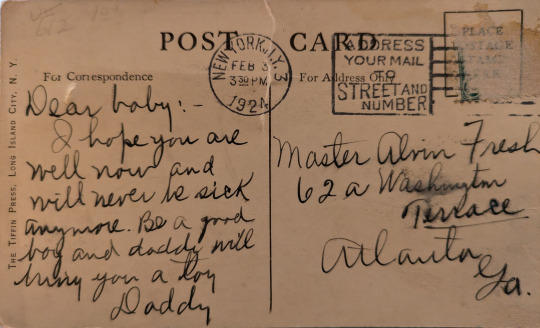 POST CARD
NEW YORK, N.Y. 3
FEB 3
3 30 PM
1924
ADDRESS
YOUR MAIL
TO
STREET AND
NUMBER
PLACE
POSTAGE
STAMP
HERE
For Correspondence
For Address Only
THE TIFFIN PRESS, LONG ISLAND CITY, N. Y.
Dear baby:-
I hope you are
well now and
will never be sick
anymore. Be a good
boy and daddy will
bring you a toy
Daddy
Master Alvin Fresh
62 a Washington
Terrace
Atlanta
Ga.